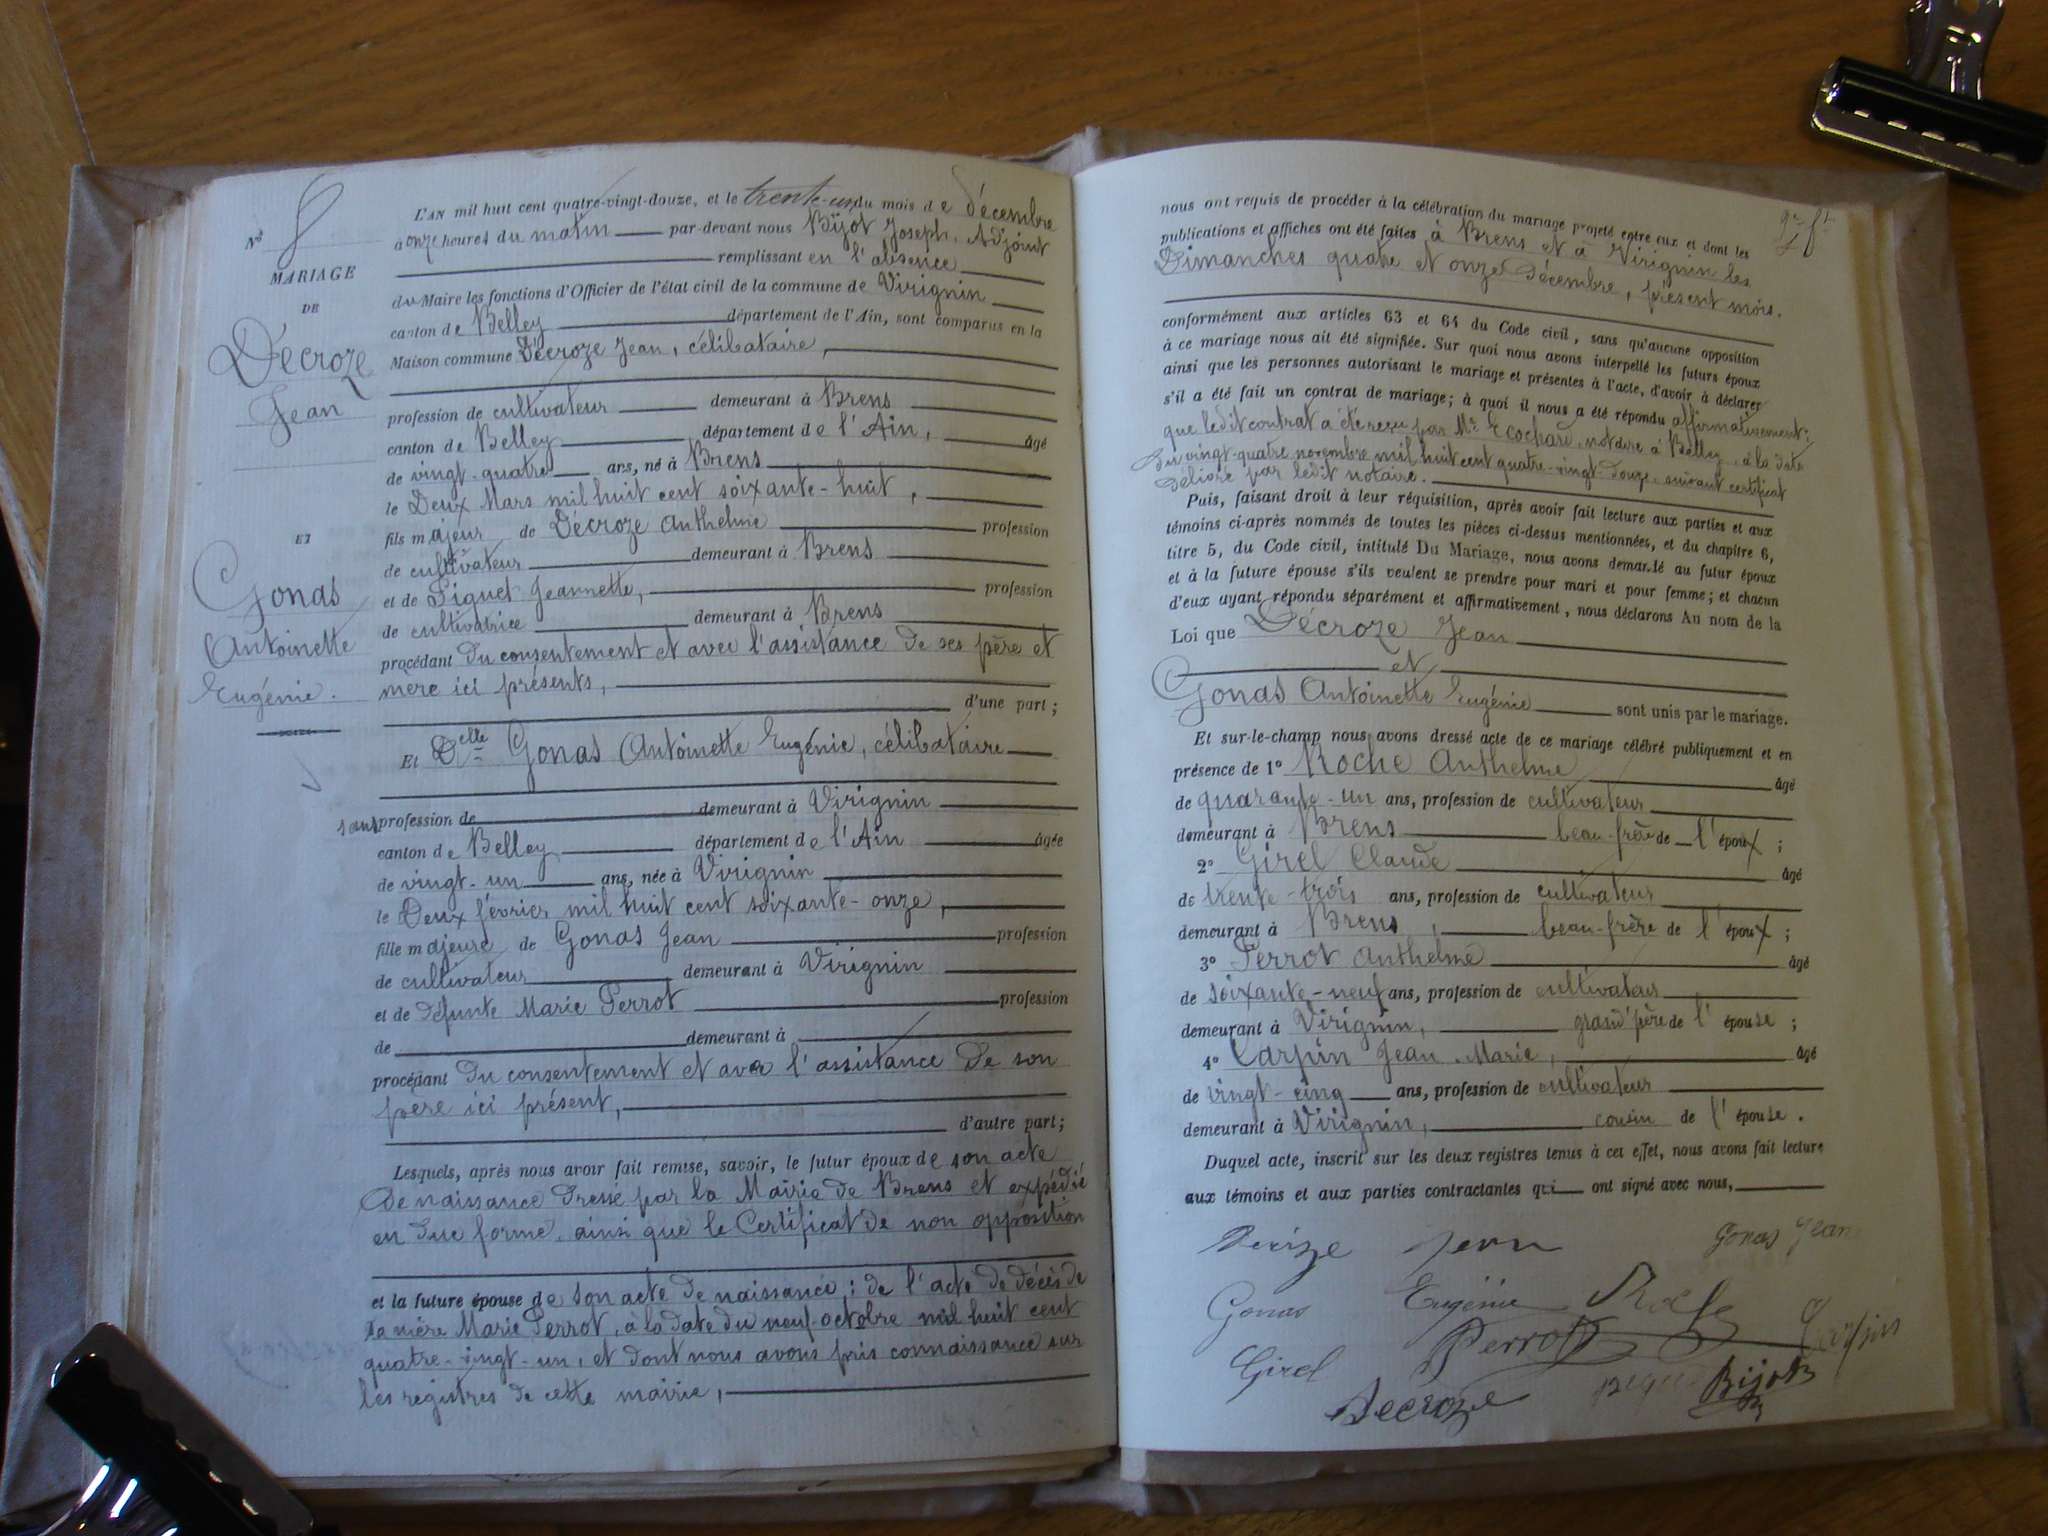 N° 8
MARIAGE
DE
Décroze
Jean
ET
Gonas
Antoinette
Eugénie.
L'AN mil huit cent quatre-vingt-douze, et le trente-un du mois de décembre
à onze heures du matin par-devant nous Bijot Joseph, Adjoint
remplissant en l'absence
du Maire les fonctions d'Officier de l'état civil de la commune de Virignin
canton de Belley département de l'Ain, sont comparus en la
Maison commune Décroze Jean, célibataire,
profession de cultivateur demeurant à Brens
canton de Belley département de l'Ain, âgé
de vingt-quatre ans, né à Brens
le Deux Mars mil huit cent soixante-huit,
fils majeur de Décroze Anthelme profession
de cultivateur demeurant à Brens
et de Piguet Jeannette, profession
de cultivatrice demeurant à Brens
procédant du consentement et avec l'assistance de ses père et
mère ici présents,
d'une part;
Et Delle Gonas Antoinette Eugénie, célibataire
sans profession de demeurant à Virignin
canton de Belley département de l'Ain âgée
de vingt-un ans, née à Virignin
le Deux février mil huit cent soixante-onze,
fille majeure de Gonas Jean profession
de cultivateur demeurant à Virignin
et de défunte Marie Perrot profession
de demeurant à
procédant du consentement et avec l'assistance de son
père ici présent,
d'autre part;
Lesquels, après nous avoir fait remise, savoir, le futur époux de son acte
de naissance dressé par la Mairie de Brens et expédié
en due forme, ainsi que le Certificat de non opposition
et la future épouse de son acte de naissance; de l'acte de décès de
sa mère Marie Perrot, à la date du neuf octobre mil huit cent
quatre-vingt-un, et dont nous avons pris connaissance sur
les registres de cette mairie,
nous ont requis de procéder à la célébration du mariage projeté entre eux et dont les
publications et affiches ont été faites à Brens et à Virignin les
Dimanches quatre et onze Décembre, présent mois.
conformément aux articles 63 et 64 du Code civil, sans qu'aucune opposition
à ce mariage nous ait été signifiée. Sur quoi nous avons interpellé les futurs époux
ainsi que les personnes autorisant le mariage et présentes à l'acte, d'avoir à déclarer
s'il a été fait un contrat de mariage; à quoi il nous a été répondu affirmativement;
que ledit contrat a été reçu par Me Ecochard, notaire à Belley, à la date
du vingt-quatre novembre mil huit cent quatre-vingt-douze, suivant certificat
délivré par ledit notaire.
Puis, faisant droit à leur réquisition, après avoir fait lecture aux parties et aux
témoins ci-après nommés de toutes les pièces ci-dessus mentionnées, et du chapitre 6,
titre 5, du Code civil, intitulé Du Mariage, nous avons demandé au futur époux
et à la future épouse s'ils veulent se prendre pour mari et pour femme; et chacun
d'eux ayant répondu séparément et affirmativement, nous déclarons Au nom de la
Loi que Décroze Jean
et
Gonas Antoinette Eugénie sont unis par le mariage.
Et sur-le-champ nous avons dressé acte de ce mariage célébré publiquement et en
présence de 1° Roche Anthelme âgé
de quarante-un ans, profession de cultivateur
demeurant à Brens beau-frère de l'époux;
2° Girel Claude âgé
de trente-trois ans, profession de cultivateur
demeurant à Brens, beau-frère de l'époux;
3° Perrot Anthelme âgé
de soixante-neuf ans, profession de cultivateur
demeurant à Virignin, grand'père de l'épouse;
4° Carpin Jean-Marie, âgé
de vingt-cinq ans, profession de cultivateur
demeurant à Virignin, cousin de l'épouse.
Duquel acte, inscrit sur les deux registres tenus à cet effet, nous avons fait lecture
aux témoins et aux parties contractantes qui ont signé avec nous,
Jean Gonas Jean
Gonas Eugénie Roche
Perrot Carpin
Girel
Decroze Bijot